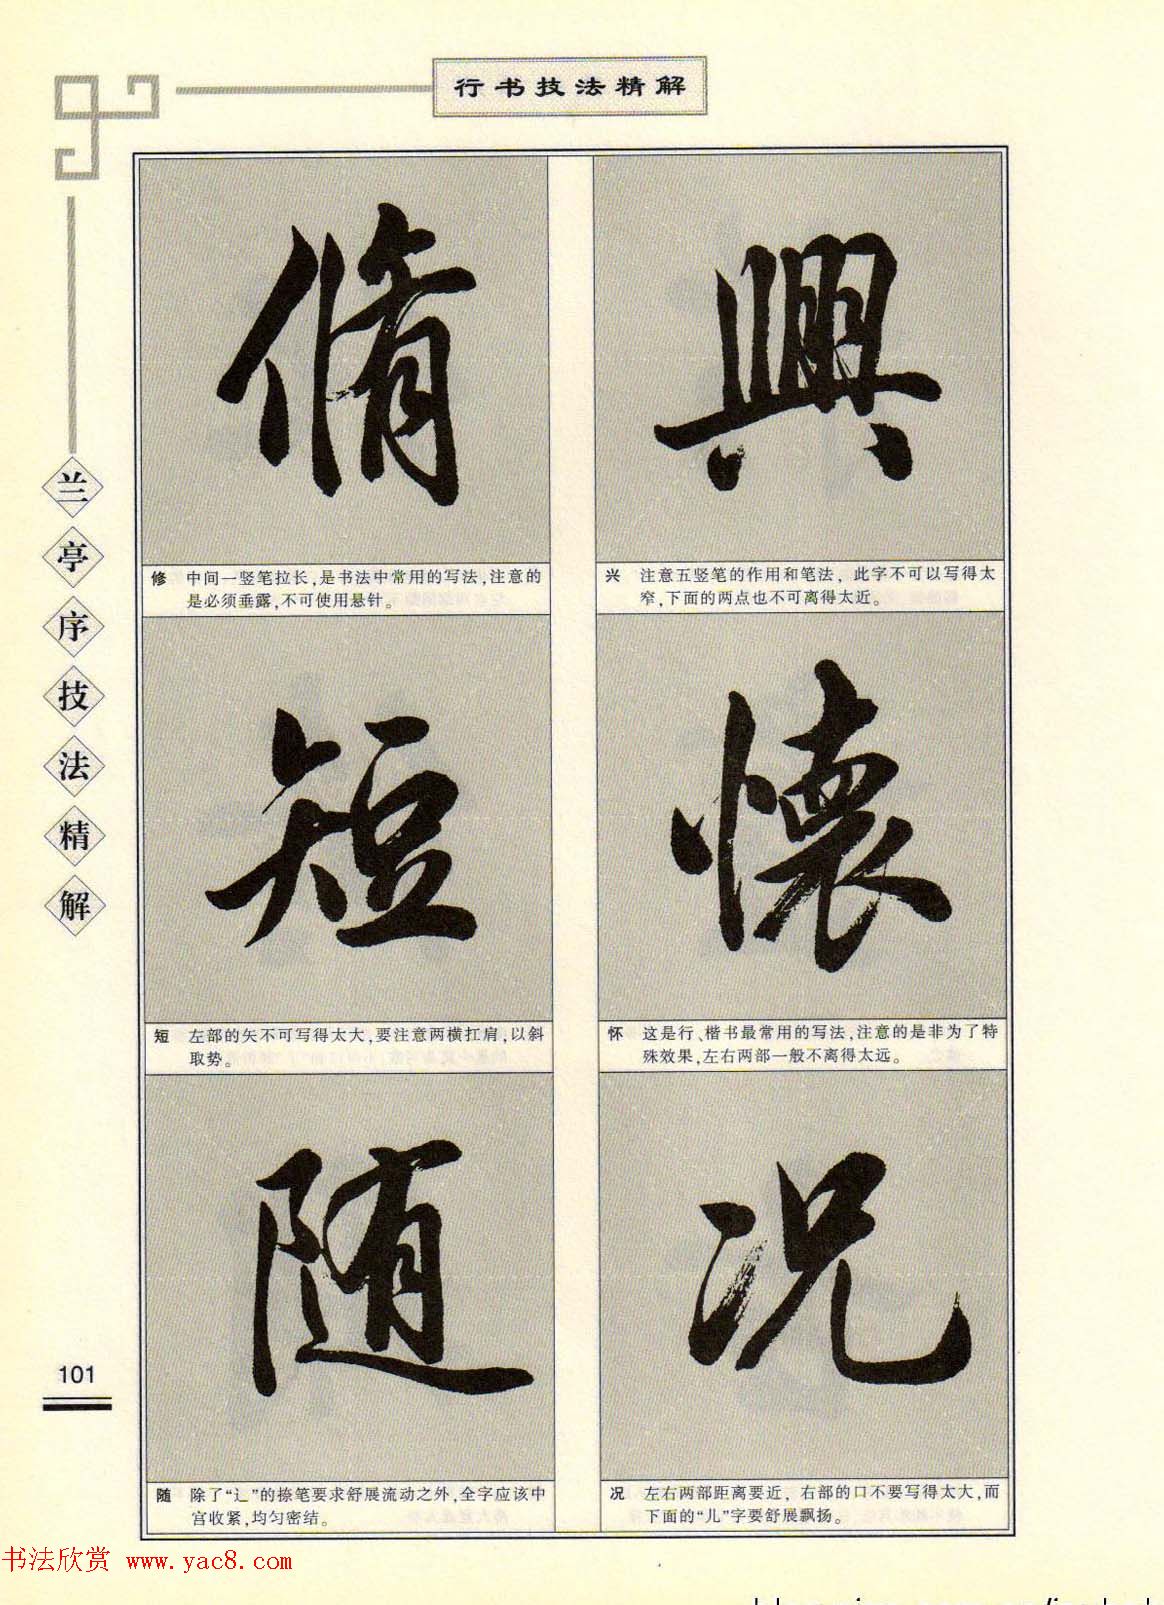 行书技法精解
兰亭序技法精解
脩
興
修 中间一竖笔拉长,是书法中常用的写法,注意的
是必须垂露,不可使用悬针。
兴 注意五竖笔的作用和笔法,此字不可以写得太
窄,下面的两点也不可离得太近。
短
懷
短 左部的矢不可写得太大,要注意两横扛肩,以斜
取势。
怀 这是行、楷书最常用的写法,注意的是非为了特
殊效果,左右两部一般不离得太远。
随
况
随 除了“辶”的捺笔要求舒展流动之外,全字应该中
宫收紧,均匀密结。
况 左右两部距离要近,右部的口不要写得太大,而
下面的“儿”字要舒展飘扬。
101
书法欣赏 www.yac8.com